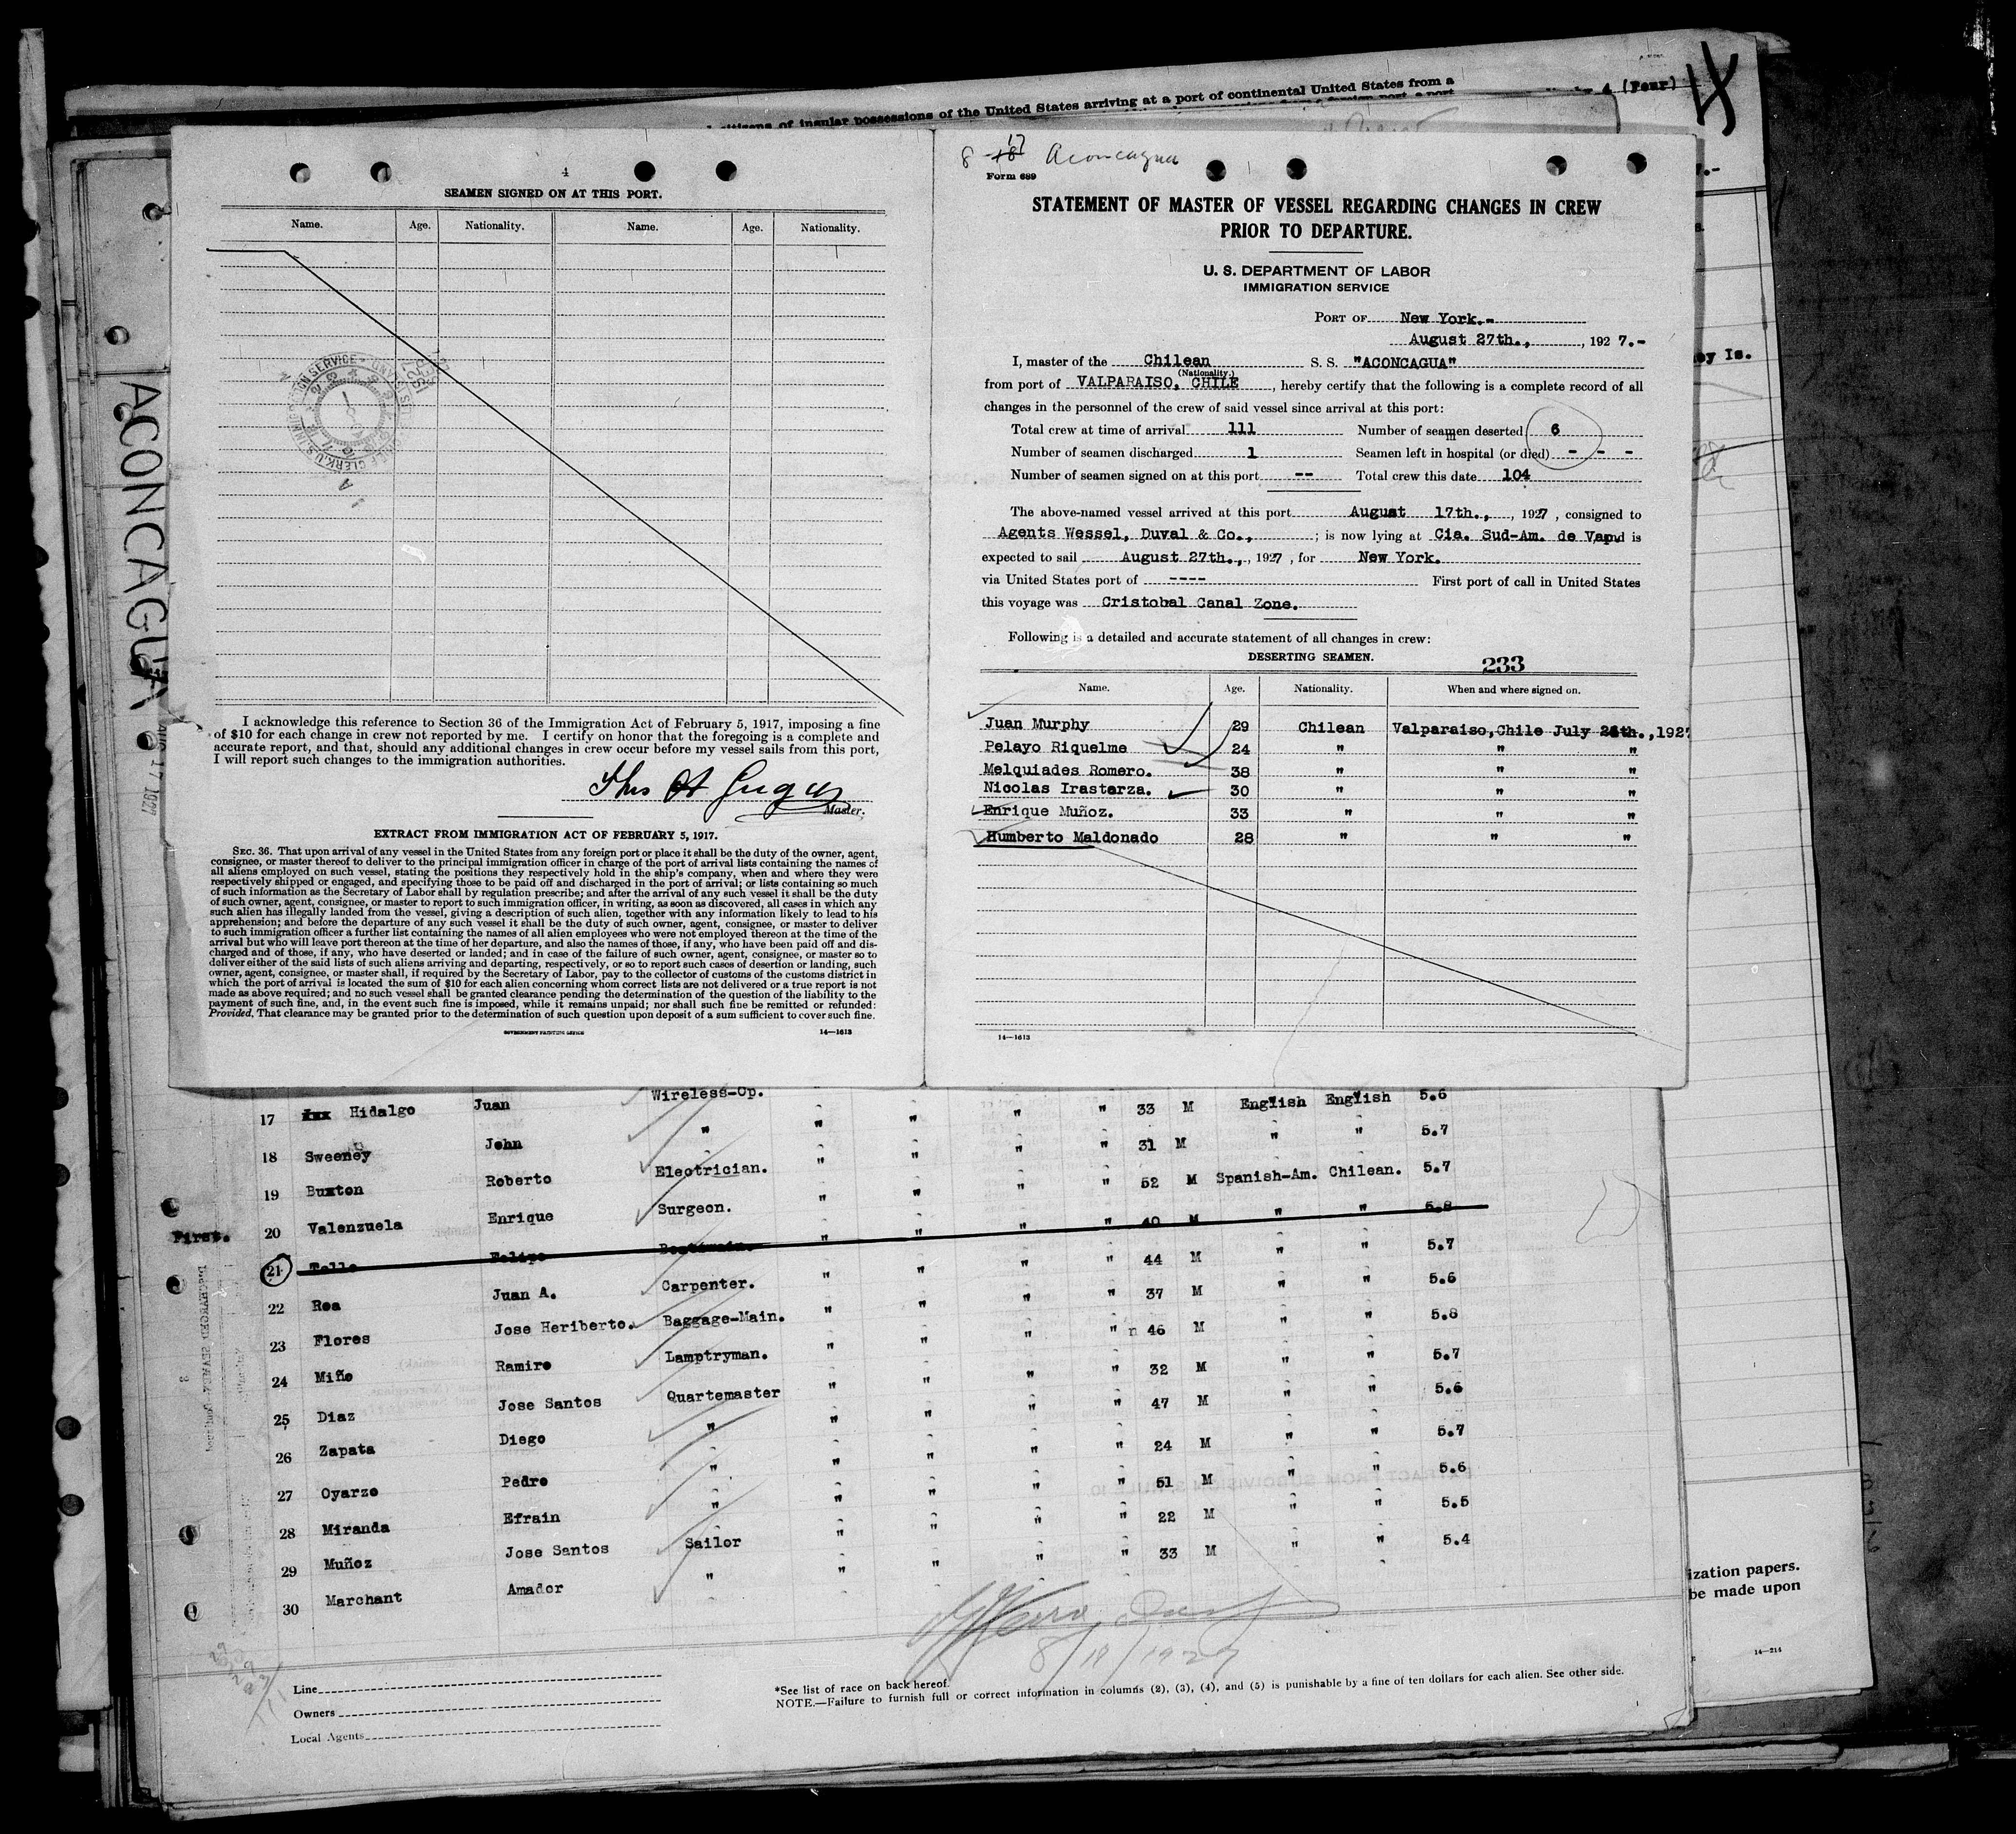 citizens of insular possessions of the United States arriving at a port of continental United States from a
4 (Four)
ACONCAGUA
AUG 17 1927
4
SEAMEN SIGNED ON AT THIS PORT.
Name. Age. Nationality. Name. Age. Nationality.
I acknowledge this reference to Section 36 of the Immigration Act of February 5, 1917, imposing a fine
of $10 for each change in crew not reported by me. I certify on honor that the foregoing is a complete and
accurate report, and that, should any additional changes in crew occur before my vessel sails from this port,
I will report such changes to the immigration authorities.
Master.
EXTRACT FROM IMMIGRATION ACT OF FEBRUARY 5, 1917.
SEC. 36. That upon arrival of any vessel in the United States from any foreign port or place it shall be the duty of the owner, agent,
consignee, or master thereof to deliver to the principal immigration officer in charge of the port of arrival lists containing the names of
all aliens employed on such vessel, stating the positions they respectively hold in the ship's company, when and where they were
respectively shipped or engaged, and specifying those to be paid off and discharged in the port of arrival; or lists containing so much
of such information as the Secretary of Labor shall by regulation prescribe; and after the arrival of any such vessel it shall be the duty
of such owner, agent, consignee, or master to report to such immigration officer, in writing, as soon as discovered, all cases in which any
such alien has illegally landed from the vessel, giving a description of such alien, together with any information likely to lead to his
apprehension; and before the departure of any such vessel it shall be the duty of such owner, agent, consignee, or master to deliver
to such immigration officer a further list containing the names of all alien employees who were not employed thereon at the time of the
arrival but who will leave port thereon at the time of her departure, and also the names of those, if any, who have been paid off and dis-
charged and of those, if any, who have deserted or landed; and in case of the failure of such owner, agent, consignee, or master so to
deliver either of the said lists of such aliens arriving and departing, respectively, or so to report such cases of desertion or landing, such
owner, agent, consignee, or master shall, if required by the Secretary of Labor, pay to the collector of customs of the customs district in
which the port of arrival is located the sum of $10 for each alien concerning whom correct lists are not delivered or a true report is not
made as above required; and no such vessel shall be granted clearance pending the determination of the question of the liability to the
payment of such fine, and, in the event such fine is imposed, while it remains unpaid; nor shall such fine be remitted or refunded:
Provided, That clearance may be granted prior to the determination of such question upon deposit of a sum sufficient to cover such fine.
GOVERNMENT PRINTING OFFICE 14—1613
8 - 18 17 Aconcagua
Form 689
STATEMENT OF MASTER OF VESSEL REGARDING CHANGES IN CREW
PRIOR TO DEPARTURE.
U. S. DEPARTMENT OF LABOR
IMMIGRATION SERVICE
PORT OF New York.-
August 27th., , 192 7.-
I, master of the Chilean S. S. "ACONCAGUA"
(Nationality.)
from port of VALPARAISO, CHILE , hereby certify that the following is a complete record of all
changes in the personnel of the crew of said vessel since arrival at this port:
Total crew at time of arrival 111 Number of seamen deserted 6
Number of seamen discharged 1 Seamen left in hospital (or died) - - -
Number of seamen signed on at this port -- Total crew this date 104
The above-named vessel arrived at this port August 17th., , 1927 , consigned to
Agents Wessel, Duval & Co., ; is now lying at Cia. Sud-Am. de Vap. and is
expected to sail August 27th., , 1927 , for New York.
via United States port of ---- First port of call in United States
this voyage was Cristobal Canal Zone.
Following is a detailed and accurate statement of all changes in crew:
DESERTING SEAMEN. 233
Name. Age. Nationality. When and where signed on.
Juan Murphy 29 Chilean Valparaiso,Chile July th.,1927
Pelayo Riquelme 24 " " "
Melquiades Romero. 38 " " "
Nicolas Irasterza. 30 " " "
Enrique Muñoz. 33 " " "
Humberto Maldonado 28 " " "
14—1613
17 Hidalgo Juan Wireless-Op. " " " " 33 M English English 5.6
18 Sweeney John " " " " " 31 M " " 5.7
19 Buxton Roberto Electrician. " " " " 52 M Spanish-Am. Chilean. 5.7
First. 20 Valenzuela Enrique Surgeon. " " " " 40 M " " 5.8
21 Tello Felipe Boatswain. " " " " 44 M " " 5.7
22 Roa Juan A. Carpenter. " " " " 37 M " " 5.6
23 Flores Jose Heriberto. Baggage-Main. " " " " 46 M " " 5.8
24 Miño Ramiro Lamptryman. " " " " 32 M " " 5.7
25 Diaz Jose Santos Quartemaster " " " " 47 M " " 5.6
26 Zapata Diego " " " " " 24 M " " 5.7
27 Oyarzo Pedro " " " " " 51 M " " 5.6
28 Miranda Efrain " " " " " 22 M " " 5.5
29 Muñoz Jose Santos Sailor " " " " 33 M " " 5.4
30 Marchant Amador " "
8/18/1927
Line
Owners
Local Agents
*See list of race on back hereof.
NOTE.—Failure to furnish full or correct information in columns (2), (3), (4), and (5) is punishable by a fine of ten dollars for each alien. See other side.
ization papers.
be made upon
14—214